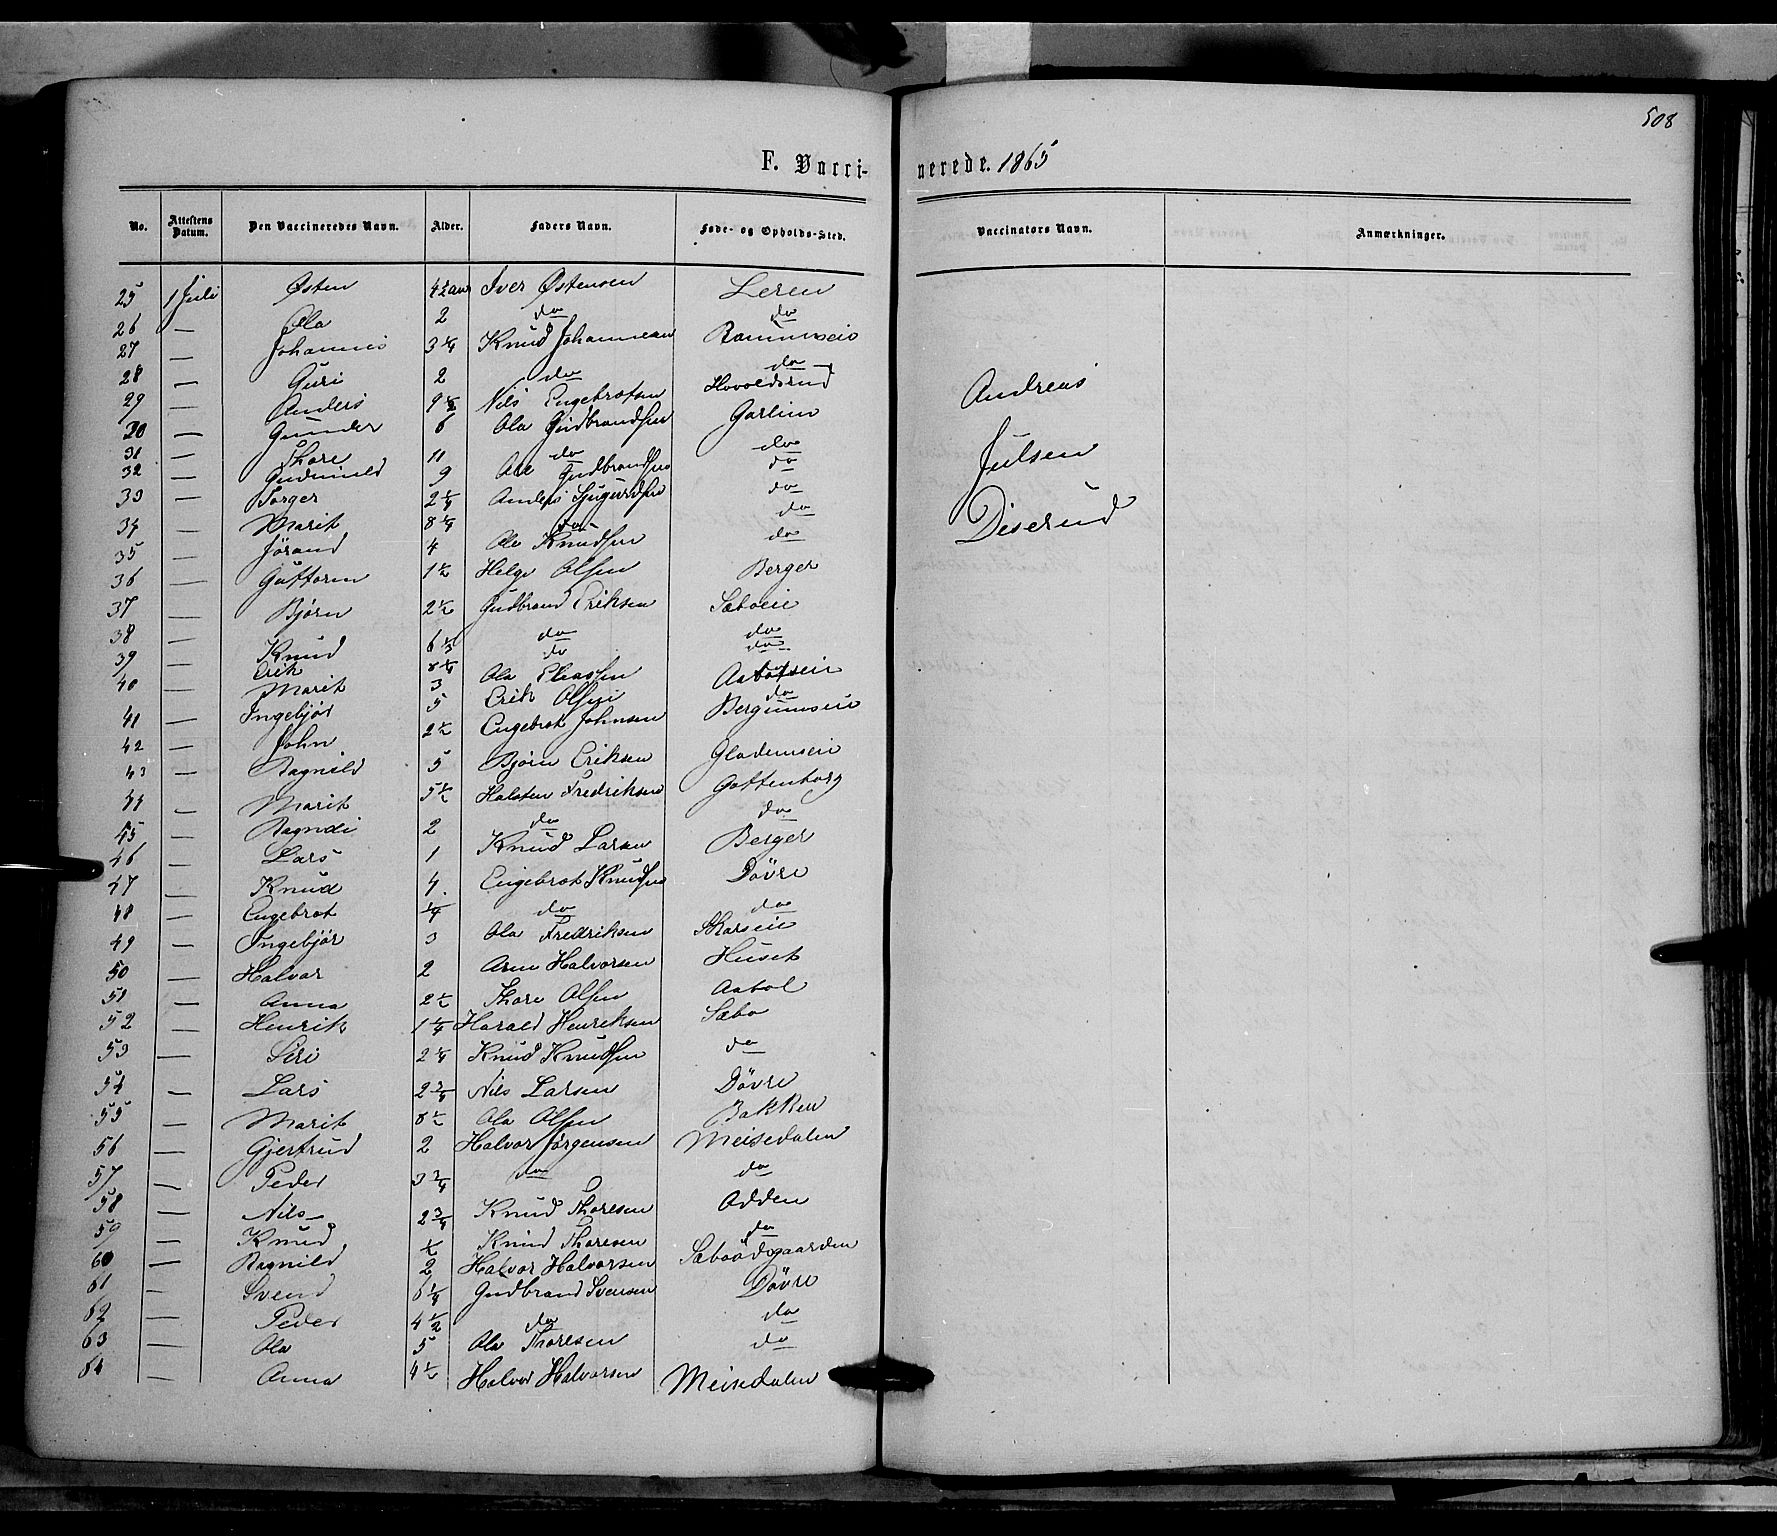 508
F. Vaccinerede. 1865
No. Attestens Datum. Den Vaccineredes Navn. Alder. Faders Navn. Føde- og Opholds-Sted. Vaccinators Navn. Anmærkninger.
25 1 Juli Østen 4½ aar Iver Østensen Leren
26 — Ola 2 do do
27 — Johannes 3¼ Knud Johannesen
28 — Guri 2 do do
29 — Anders 9½ Nils Engebretsen
30 — Gunder 6 Ola Gudbrandsen Garlien
31 — Thore 11 do do
32 — Gudmund 9 Ole Gudbrandsen do
33 — Torger 2¼ Anders do
34 — Marit 8¼ do do
35 — Jørand 4 Ole Knudsen do
36 — Guttorm 1½ Helge Olsen Berger
37 — Bjørn 2½ Gudbrand Eriksen Sæboeie
38 — Knud 6 do do
39 — Erik 8¼ do do
40 — Marit 3 Ola Eliassen
41 — Ingebjør 5 Erik Olsen do
42 — John 2½ Engebret Johnsen Bergumseie
43 — Ragnild 5 Bjørn Eriksen
44 — Marit 5½ Halsten Fredriksen Gottenborg
45 — Ragndi 2 do do
46 — Lars 1 Knud Larsen Berger
47 — Knud 4. Engebret Knudsen Døvre
48 — Engebret ¼ do do
49 — Ingebjør 3 Ola Fredriksen Skarseie
50 — Halvor 2 Arne Halvorsen Huset
51 — Anna 2½ Thore Olsen Aabol
52 — Henrik 1¼ Harald Henriksen Sæbo
53 — Siri 2¼ Knud Knudsen do
54 — Lars 2¾ Nils Larsen Døvre
55 — Marit 8½ Ola Olsen Bakken
56 — Gjertrud 2 Halvor Jørgensen Meisedalen
57 — Peder 3¾ do do
58 — Nils 2¾ Knud Thoresen Odden
59 — Knud ½ Knud Thoresen do
60 — Ragnild 2 Halvor Halvorsen
61 — Svend 6¼ Gudbrand Svensen Døvre
62 — Peder 4½ do do
63 — Ola 5 Ola Thoresen do
64 — Anna 4½ Halvor Halvorsen Meisedalen
Andreas
Julsen
Diserud